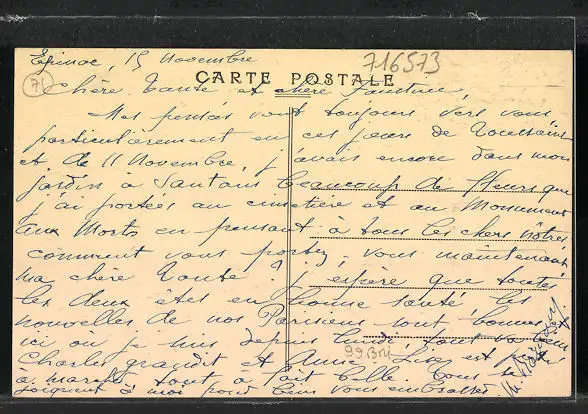 Epinac, 15 Novembre
716573
71
CARTE POSTALE
chère Tante et chère Faustine,
Mes pensées vont toujours vers vous
particulièrement en ces jours de Toussaint
et de 11 Novembre, j'avais encore dans mon
jardin à Santans beaucoup de fleurs que
j'ai portées au cimetière et au Monument
aux Morts en pensant à tous les chers nôtres
comment vous portez vous maintenant
ma chère Tante ? J'espère que toutes
les deux êtes en bonne santé les
nouvelles de nos Parisiens sont bonnes
ici où je suis depuis lundi tout va bien
Charles grandit et Anne Lise est
à marcher tout à fait belle. Tous se
joignent à moi pour bien vous embrasser
M.